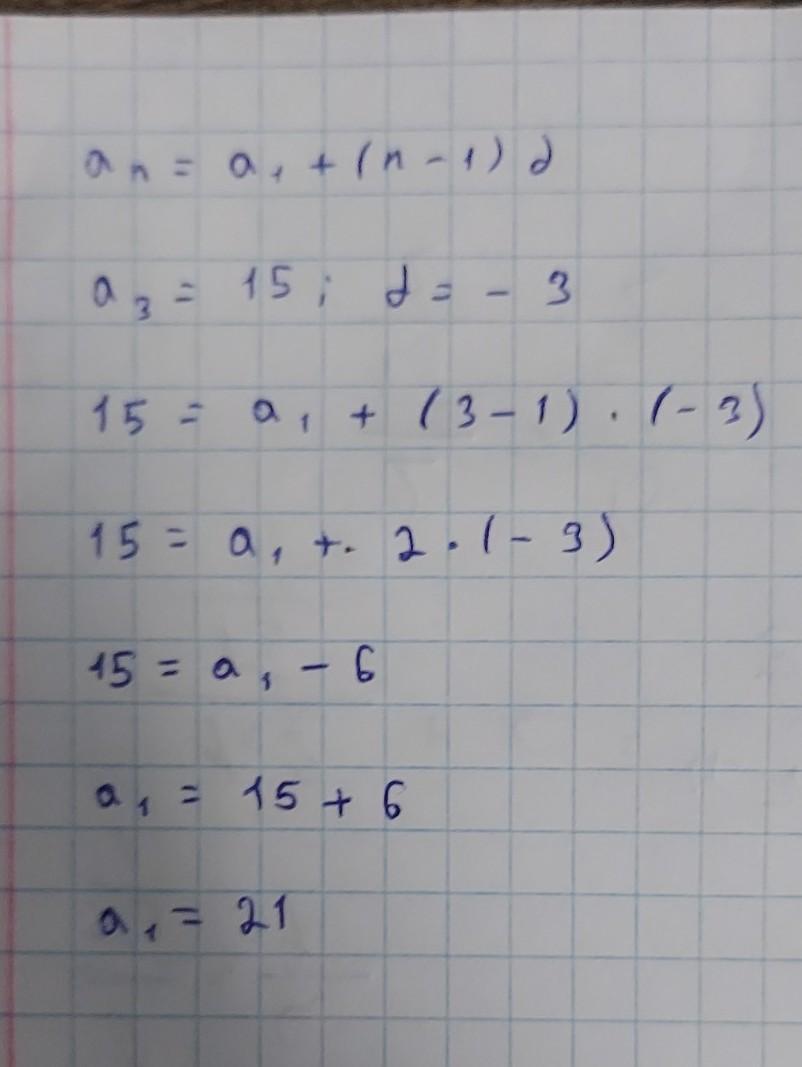 aₙ = a₁ + (n - 1) d
a₃ = 15; d = - 3
15 = a₁ + (3 - 1) · (- 3)
15 = a₁ +. 2 · (- 3)
15 = a₁ - 6
a₁ = 15 + 6
a₁ = 21